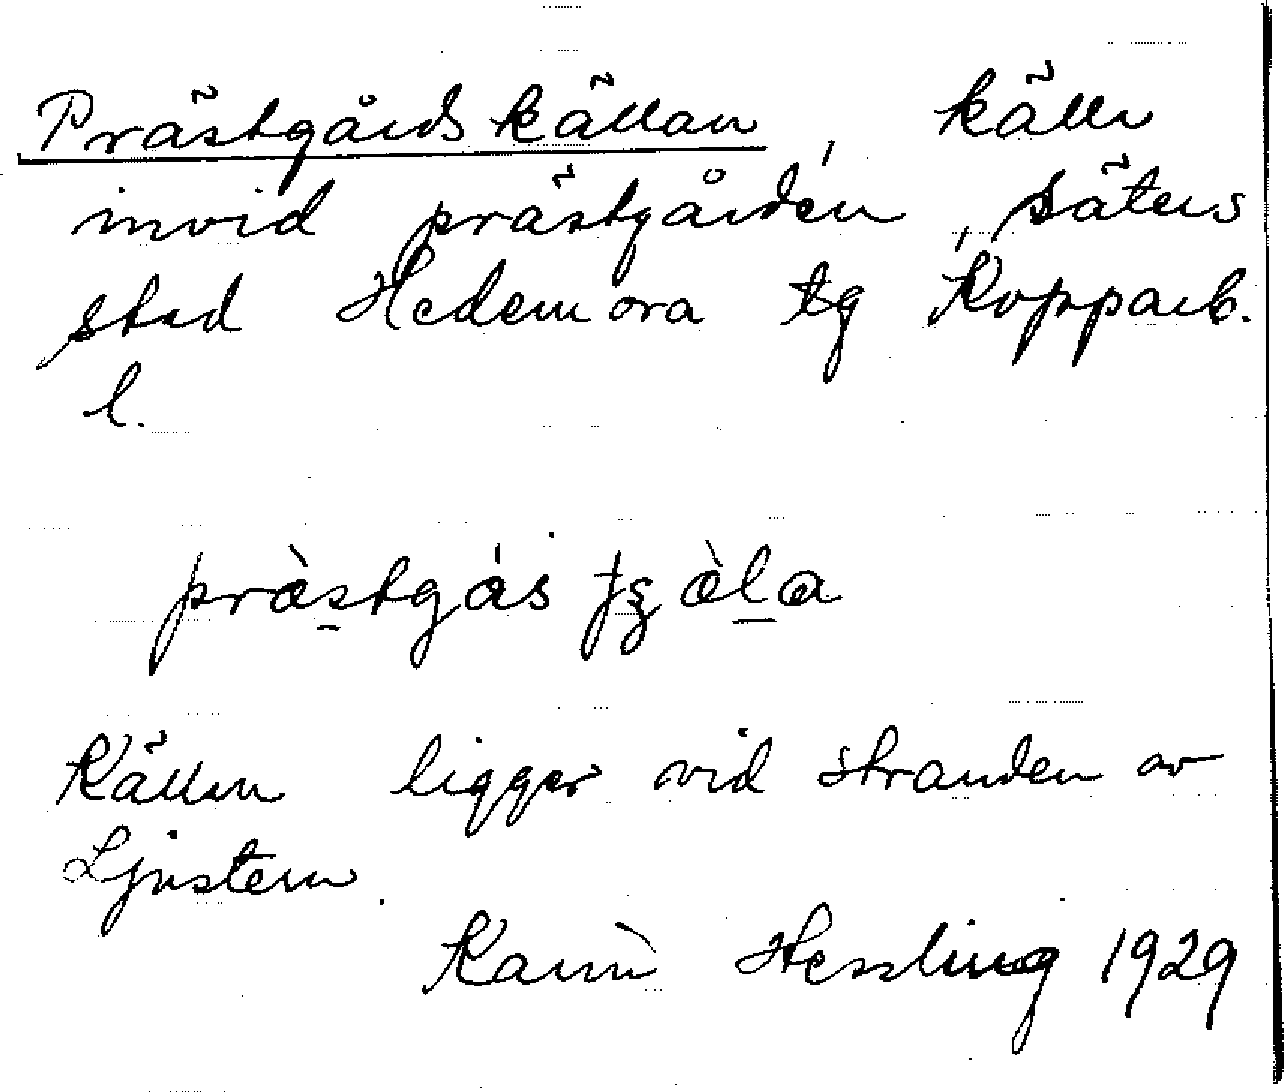 Prästgårdskällan, källa
invid prästgården, Säters
stad Hedemora tg Kopparb.
l.
Källan ligger vid stranden av
Ljustern.
Karin Hessling 1929